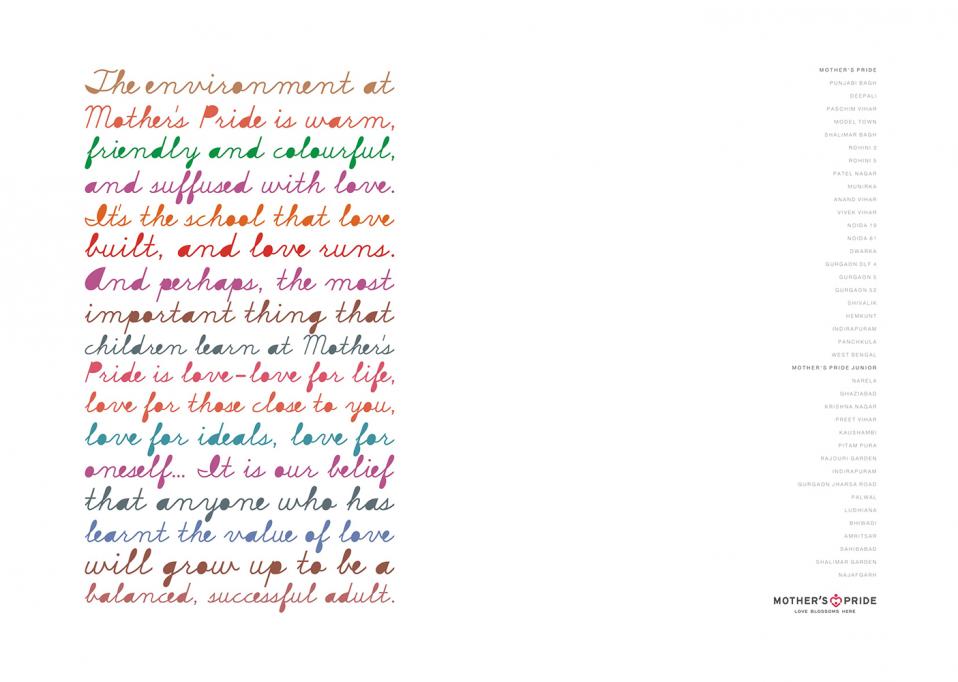 The environment at
Mother's Pride is warm,
friendly and colourful,
and suffused with love.
It's the school that love
built, and love runs.
And perhaps, the most
important thing that
children learn at Mother's
Pride is love-love for life,
love for those close to you,
love for ideals, love for
oneself... It is our belief
that anyone who has
learnt the value of love
will grow up to be a
balanced, successful adult.
MOTHER'S PRIDE
PUNJABI BAGH
DEEPALI
PASCHIM VIHAR
MODEL TOWN
SHALIMAR BAGH
ROHINI 3
ROHINI 5
PATEL NAGAR
MUNIRKA
ANAND VIHAR
VIVEK VIHAR
NOIDA 19
NOIDA 61
DWARKA
GURGAON DLF 4
GURGAON 5
GURGAON 52
SHIVALIK
HEMKUNT
INDIRAPURAM
PANCHKULA
WEST BENGAL
MOTHER'S PRIDE JUNIOR
NARELA
GHAZIABAD
KRISHNA NAGAR
PREET VIHAR
KAUSHAMBI
PITAM PURA
RAJOURI GARDEN
INDIRAPURAM
GURGAON JHARSA ROAD
PALWAL
LUDHIANA
BHIWADI
AMRITSAR
SAHIBABAD
SHALIMAR GARDEN
NAJAFGARH
MOTHER'S PRIDE
LOVE BLOSSOMS HERE